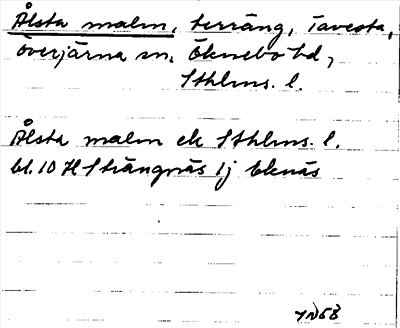 Ålsta malm, terräng, Tavesta,
Överjärna sn, Öknebo hd,
Sthlms. l.
Ålsta malm ek Sthlms. l.
bl. 10 H Strängnäs 1j Eknäs